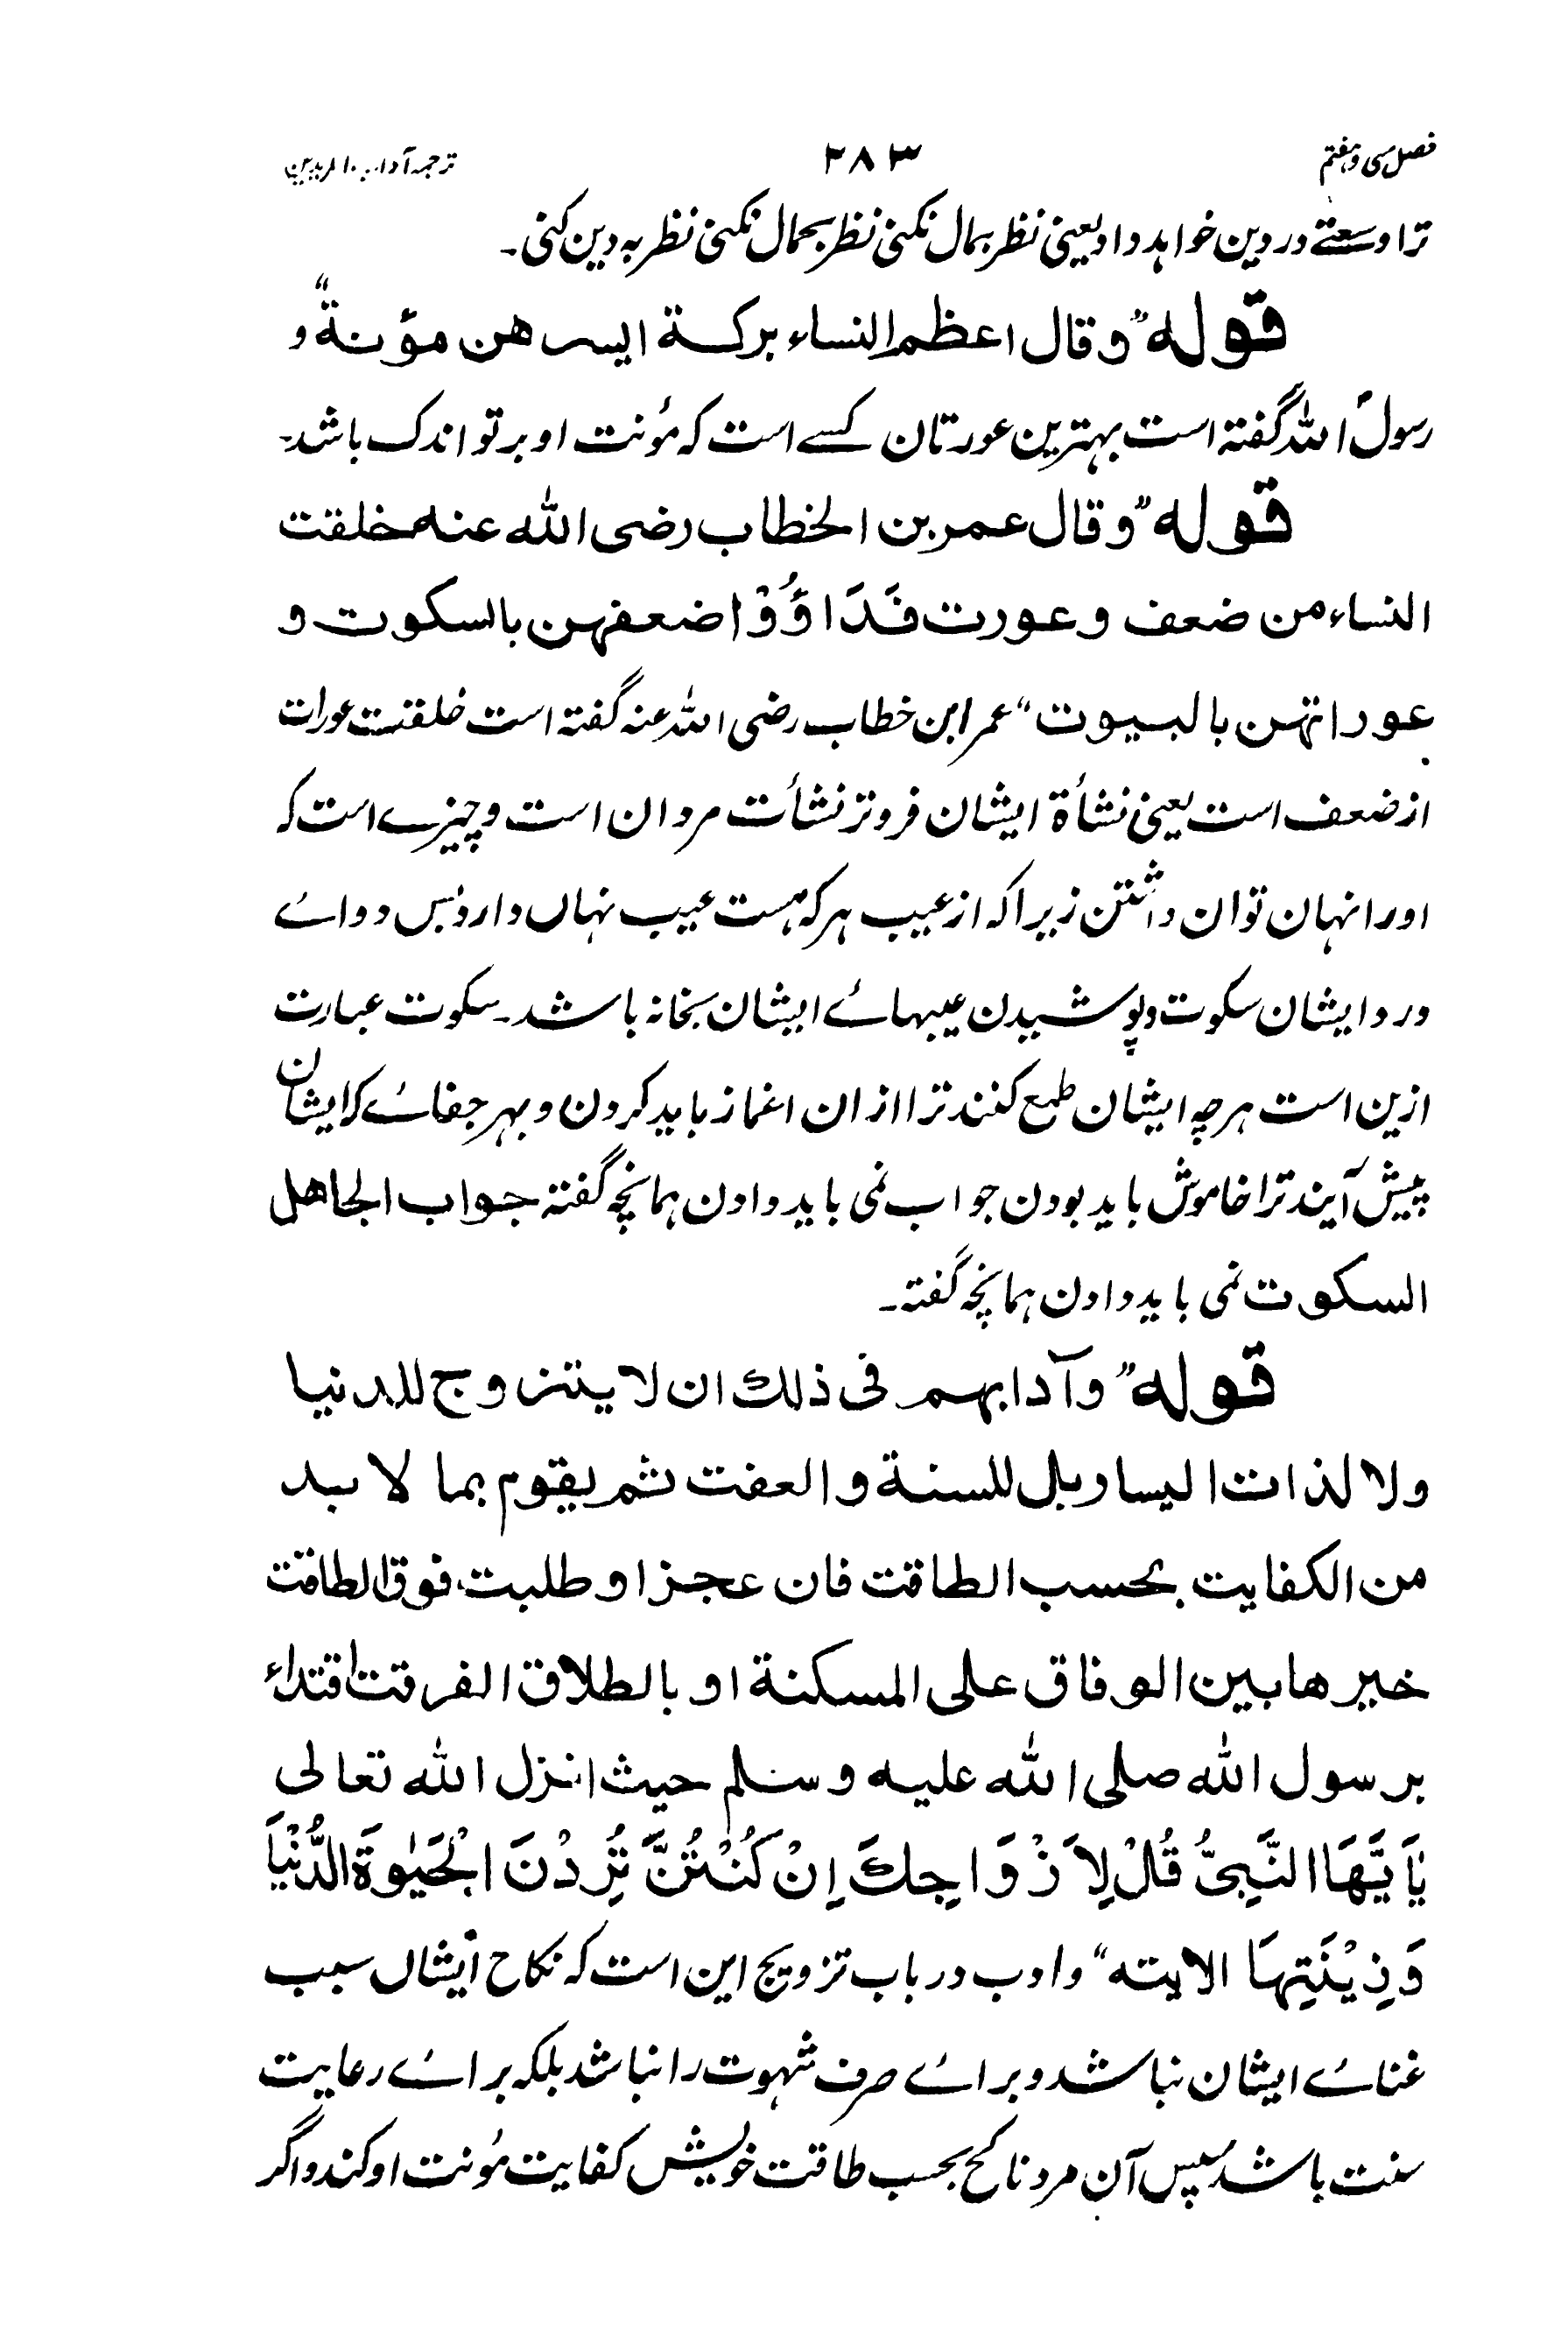 فصل سی و ہفتم ۲۸۳ ترجمہ آداب المریدین
ترا وسعتے در دین خواہد داد یعنی نظر بمال نکنی نظر بجمال نکنی نظر بہ دین کنی۔
قوله "وقال اعظم النساء بركة ایسرهن مؤنة" و
رسولؐ اللہ گفتہ است بہترین عورتان کسے است کہ مؤنت او بر تو اندک باشد۔
قوله "وقال عمر بن الخطاب رضی الله عنه خلقت
النساء من ضعف وعورت فَدَاؤُوْا ضعفهن بالسکوت و
عوراتهن بالبیوت" عمر ابن خطاب رضی اللہ عنہ گفتہ است خلقت عورات
از ضعف است یعنی نشأة ایشان فروتر نشأت مردان است و چیزے است کہ
اورا نہان توان داشتن زیرا کہ از عیب ہر کہ ہست عیب نہاں دارد پس دواے
درد ایشان سکوت و پوشیدن عیبہائے ایشان بخانہ باشد۔ سکوت عبارت
ازین است ہر چہ ایشان طمع کنند ترا ازان اغماز باید کردن و بہر جفائے کہ ایشان
پیش آیند ترا خاموش باید بودن جواب نمی باید دادن ہمانچہ گفتہ جواب الجاهل
السکوت نمی باید دادن ہمانچہ گفتہ۔
قوله "وآدابهم فی ذلك ان لا یتزوج للدنیا
ولا لذات الیسار بل للسنة والعفت ثم یقوم بما لا بد
من الکفایت بحسب الطاقت فان عجز او طلبت فوق الطاقت
خیرها بین الوفاق علی المسکنة او بالطلاق الفرقت اقتداء
برسول الله صلی الله علیه وسلم حیث انزل الله تعالی
یٰاَیُّهَا النَّبِیُّ قُلْ لِاَزْوَاجِكَ اِنْ كُنْتُنَّ تُرِدْنَ الْحَیٰوةَ الدُّنْیَا
وَزِیْنَتِهَا الایته" وادب در باب تزویج این است کہ نکاح ایشاں سبب
غنائے ایشان نباشد و برائے صرف شہوت را نباشد بلکہ برائے رعایت
سنت باشد سپس آن مرد ناکح بحسب طاقت خویش کفایت مؤنت او کند و اگر